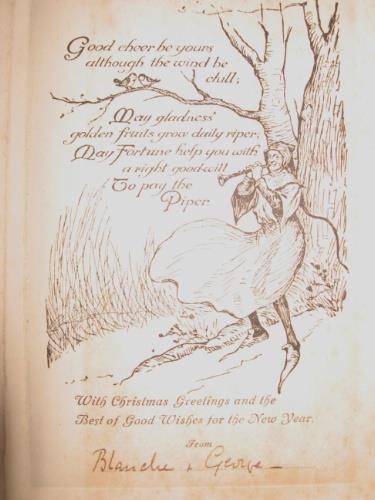 Good cheer be yours
although the wind be
chill;
May gladness'
golden fruits grow daily riper;
May Fortune help you with
a right good-will
To pay the
Piper.
With Christmas Greetings and the
Best of Good Wishes for the New Year.
From
Blanche & George